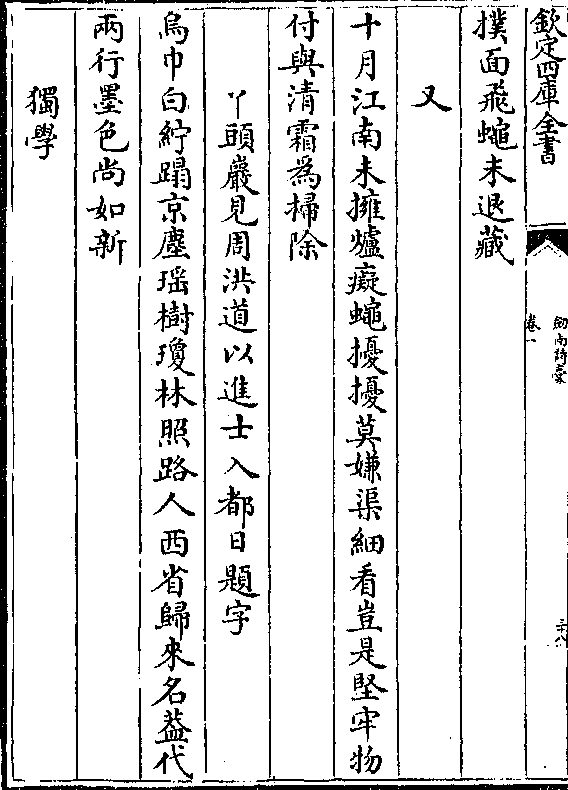 欽定四庫全書
劒南詩稾
卷一
三十八
撲面飛蠅未退藏
又
十月江南未擁爐癡蠅擾擾莫嫌渠細看豈是堅牢物
付與清霜為掃除
丫頭巖見周洪道以進士入都日題字
烏巾白紵蹋京塵瑶樹瓊林照路人西省歸來名葢代
兩行墨色尚如新
獨學